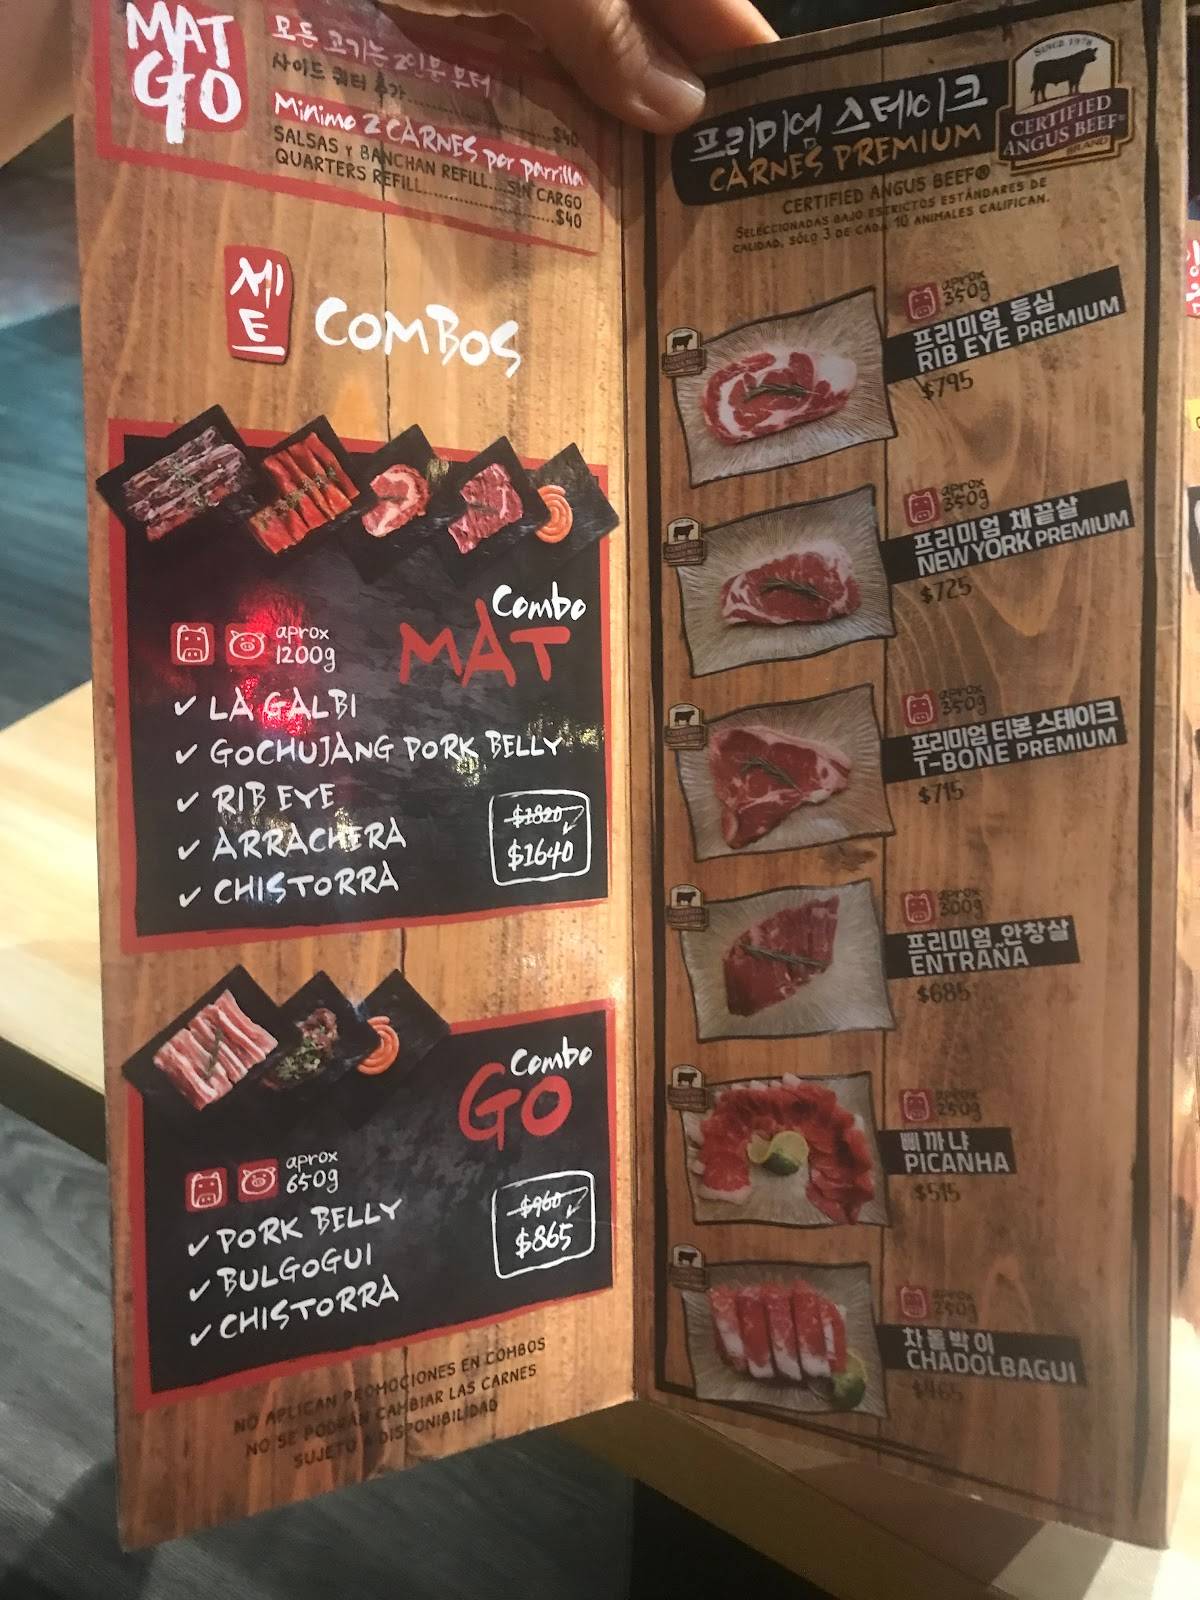 MAT
GO
모든 고기는 2인분 부터
사이드 쿼터 추가....................$40
Minimo 2 CARNES por parrilla
SALSAS Y BANCHAN REFILL....SIN CARGO
QUARTERS REFILL....................$40
세트
COMBOS
Combo
MAT
aprox
1200g
✓ LA GALBI
✓ GOCHUJANG PORK BELLY
✓ RIB EYE
✓ ARRACHERA
✓ CHISTORRA
$1820
$1640
Combo
GO
aprox
650g
✓ PORK BELLY
✓ BULGOGUI
✓ CHISTORRA
$960
$865
NO APLICAN PROMOCIONES EN COMBOS
NO SE PODRÁN CAMBIAR LAS CARNES
SUJETO A DISPONIBILIDAD
프리미엄 스테이크
CARNES PREMIUM
SINCE 1978
CERTIFIED
ANGUS BEEF®
BRAND
CERTIFIED ANGUS BEEF®
SELECCIONADAS BAJO ESTRICTOS ESTÁNDARES DE
CALIDAD, SÓLO 3 DE CADA 10 ANIMALES CALIFICAN.
aprox
350g
프리미엄 등심
RIB EYE PREMIUM
$795
aprox
350g
프리미엄 채끝살
NEW YORK PREMIUM
$725
aprox
350g
프리미엄 티본 스테이크
T-BONE PREMIUM
$715
aprox
300g
프리미엄 안창살
ENTRAÑA
$685
aprox
250g
삐까냐
PICANHA
$515
aprox
250g
차돌박이
CHADOLBAGUI
$465